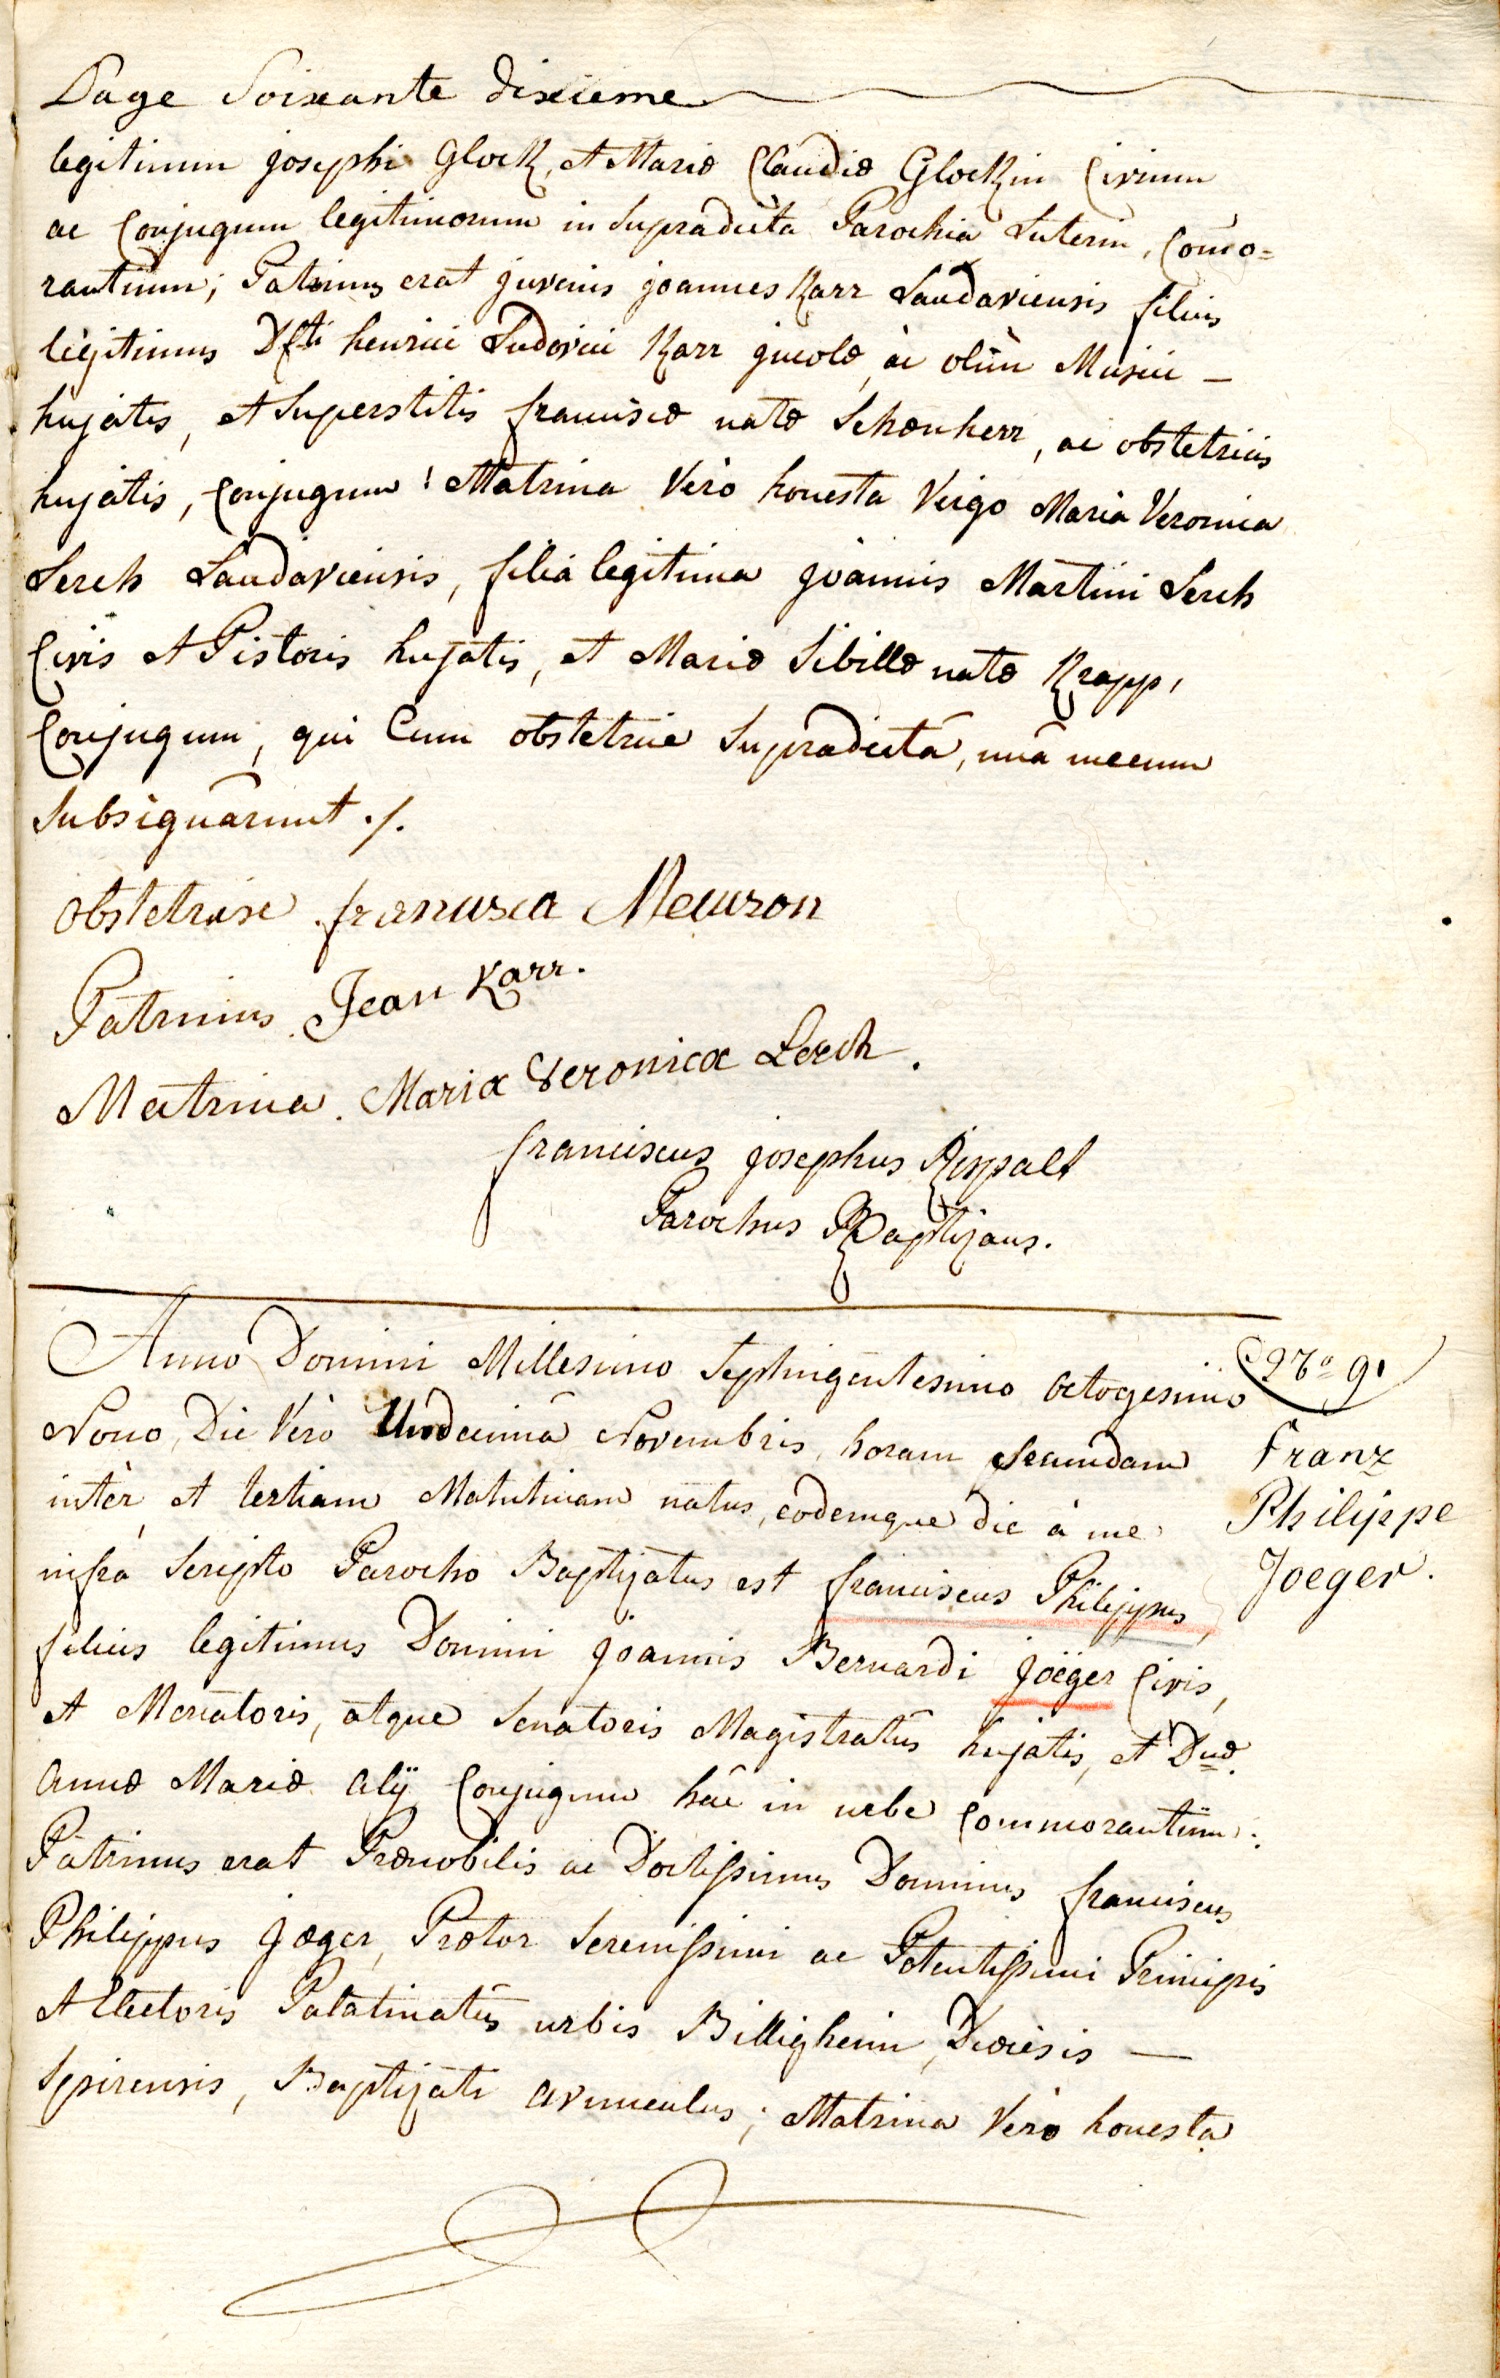 Page Soixante dixieme
legitimum josephi Glock, et Mariæ Claudiæ Glockin Civium
ac Conjugum legitimorum in supradicta Parochia Luterin, Como=
rantium; Patrinus erat juvenis joannes Karr Landaviensis filius
legitimus Dfti henrici Ludovici Karr jncolæ, ac olim Musici -
hujatis, et Superstitis franciscæ natæ Schönherr, ac obstetricis
hujatis, Conjugum! Matrina Verò honesta Virgo Maria Veronica
Lerch Landaviensis, filia legitima joannis Martini Lerch
Civis et Pistoris hujatis, et Mariæ Sibillæ natæ Krapp,
Conjugum, qui Cum obstetrice supradictâ, unâ mecum
Subsignârunt ./.
Obstetrix francisca Meuron
Patrinus. Jean Karr.
Matrina. Maria Veronica Lerch.
franciscus josephus Rispalt
Parochus Baptizans.
Anno Domini Millesimo Septingentesimo octogesimo
Nono, Die Verò Undecimâ Novembris, horam Secundam
intèr et tertiam Matutinam natus, eodemque die à me
infrà Scripto Parocho Baptizatus est franciscus Philippus,
filius legitimus Domini joannis Bernardi joëger Civis,
et Mercatoris, atque Senatoris Magistratûs hujatis, et Dnæ.
Annæ Mariæ Alÿ Conjugum hâc in urbe Commorantium:
Patrinus erat Prænobilis ac Doctissimus Dominus franciscus
Philippus Jæger, Prætor Serenissimi ac Potentissimi Principis
et Electoris Palatinatûs urbis Billigheim, Diœcesis —
Spirensis, Baptizati avunculus; Matrina Verò honesta
91
Franz
Philippe
Joeger.